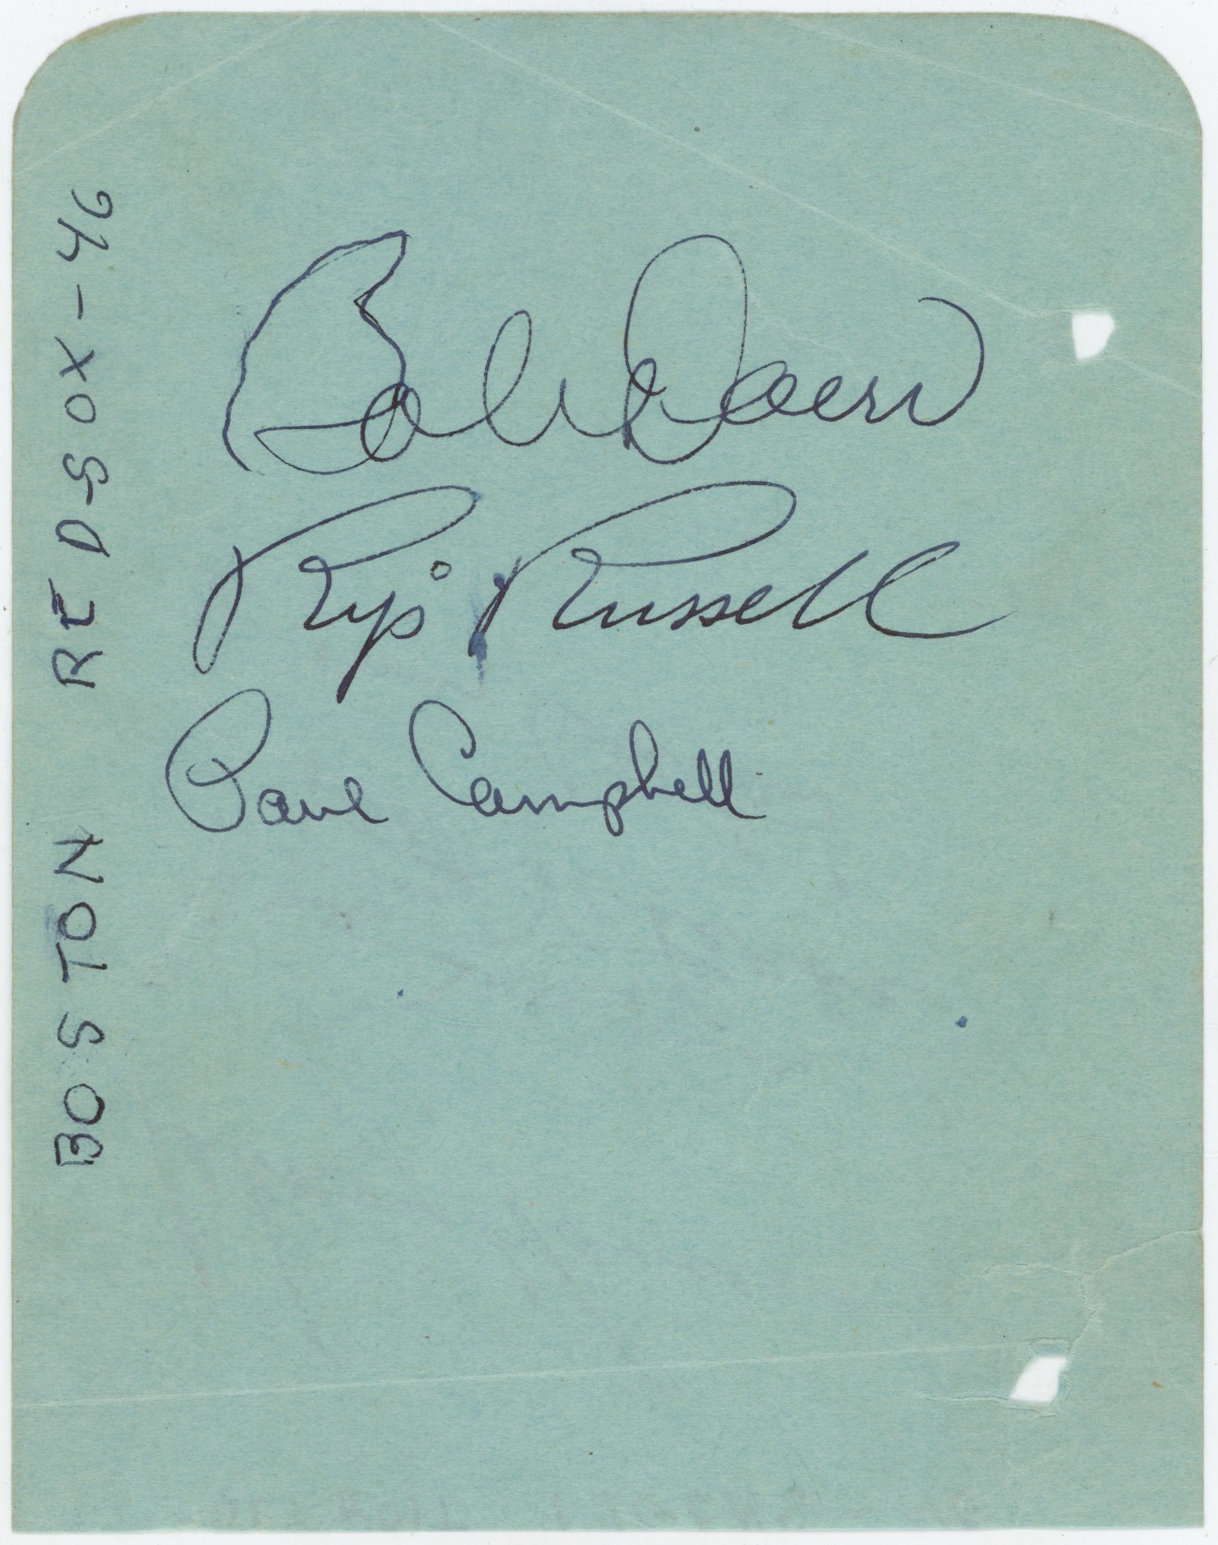 BOSTON RED-SOX-46
Bob Doerr
Rip Russell
Paul Campbell